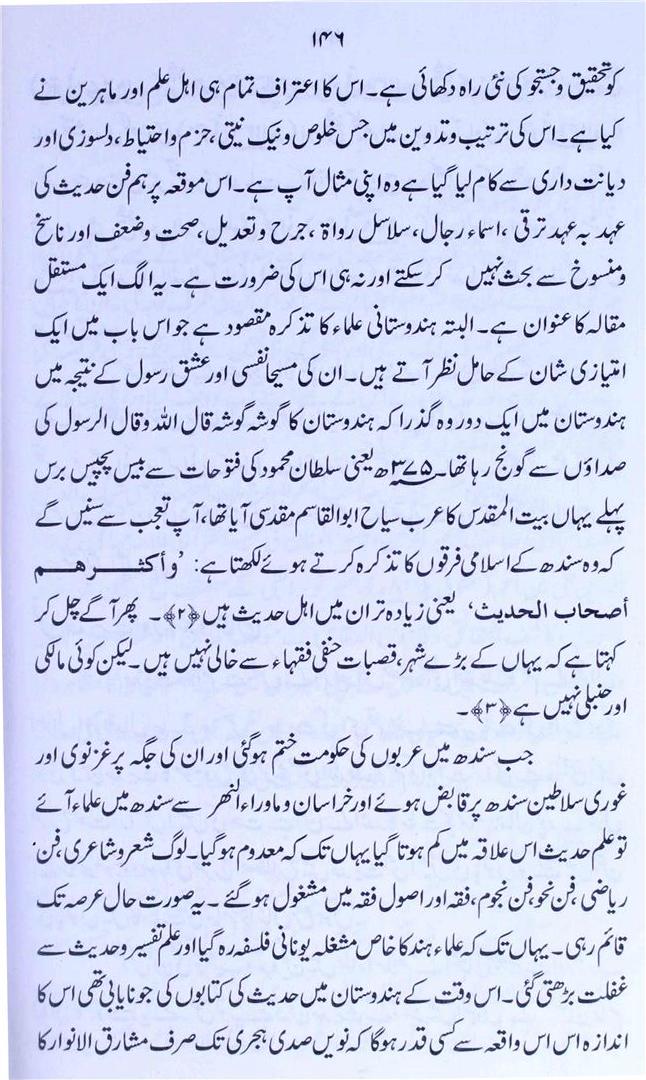 ۱۴۶
کو تحقیق و جستجو کی نئی راہ دکھائی ہے۔ اس کا اعتراف تمام ہی اہل علم اور ماہرین نے
کیا ہے۔ اس کی ترتیب وتدوین میں جس خلوص ونیک نیتی، حزم واحتیاط، دلسوزی اور
دیانت داری سے کام لیا گیا ہے وہ اپنی مثال آپ ہے۔ اس موقعہ پر ہم فن حدیث کی
عہد بہ عہد ترقی، اسماء رجال، سلاسل رواۃ، جرح وتعدیل، صحت وضعف اور ناسخ
ومنسوخ سے بحث نہیں کرسکتے اور نہ ہی اس کی ضرورت ہے۔ یہ الگ ایک مستقل
مقالہ کا عنوان ہے۔ البتہ ہندوستانی علماء کا تذکرہ مقصود ہے جو اس باب میں ایک
امتیازی شان کے حامل نظر آتے ہیں۔ ان کی مسیحا نفسی اور عشق رسول کے نتیجہ میں
ہندوستان میں ایک دور وہ گذرا کہ ہندوستان کا گوشہ گوشہ قال اللہ وقال الرسول کی
صداؤں سے گونج رہا تھا۔ ۳۷۵ھ یعنی سلطان محمود کی فتوحات سے بیس پچیس برس
پہلے یہاں بیت المقدس کا عرب سیاح ابوالقاسم مقدسی آیا تھا، آپ تعجب سے سنیں گے
کہ وہ سندھ کے اسلامی فرقوں کا تذکرہ کرتے ہوئے لکھتا ہے: ’وأکثرهم
أصحاب الحدیث‘ یعنی زیادہ تر ان میں اہل حدیث ہیں ﴿۲﴾۔ پھر آگے چل کر
کہتا ہے کہ یہاں کے بڑے شہر، قصبات حنفی فقہاء سے خالی نہیں ہیں۔ لیکن کوئی مالکی
اور حنبلی نہیں ہے ﴿۳﴾۔
جب سندھ میں عربوں کی حکومت ختم ہوگئی اور ان کی جگہ پر غزنوی اور
غوری سلاطین سندھ پر قابض ہوئے اور خراسان و ماوراء النهر سے سندھ میں علماء آئے
تو علم حدیث اس علاقہ میں کم ہوتا گیا یہاں تک کہ معدوم ہوگیا۔ لوگ شعر و شاعری، فن
ریاضی، فن نحو، فن نجوم، فقہ اور اصول فقہ میں مشغول ہوگئے۔ یہ صورت حال عرصہ تک
قائم رہی۔ یہاں تک کہ علماء ہند کا خاص مشغلہ یونانی فلسفہ رہ گیا اور علم تفسیر وحدیث سے
غفلت بڑھتی گئی۔ اس وقت کے ہندوستان میں حدیث کی کتابوں کی جو نایابی تھی اس کا
اندازہ اس اس واقعہ سے کسی قدر ہوگا کہ نویں صدی ہجری تک صرف مشارق الانوار کا